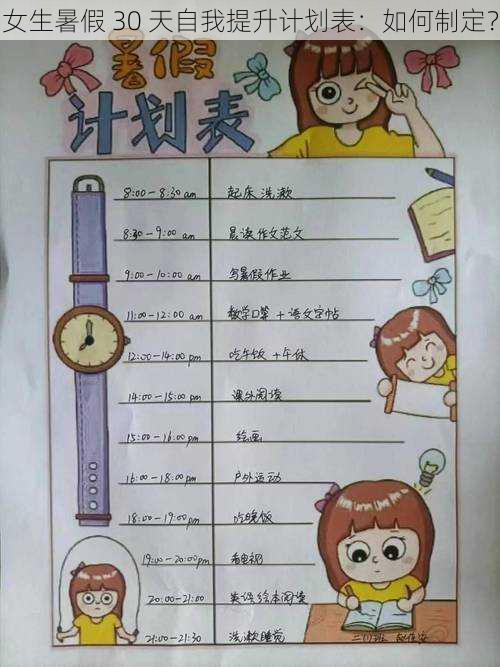 女生暑假 30 天自我提升计划表：如何制定？
暑假
计划表
8:00-8:30 am 起床洗漱
8:30-9:00 am 晨读作文范文
9:00-10:00 am 写暑假作业
11:00-12:00 am 数学口算+语文字帖
12:00-14:00 pm 吃午饭+午休
14:00-15:00 pm 课外阅读
15:00-16:00 pm 绘画
16:00-18:00 pm 户外运动
18:00-19:00 pm 吃晚饭
19:00-20:00 pm 看电视
20:00-21:00 英语绘本阅读
21:00-21:30 洗漱睡觉